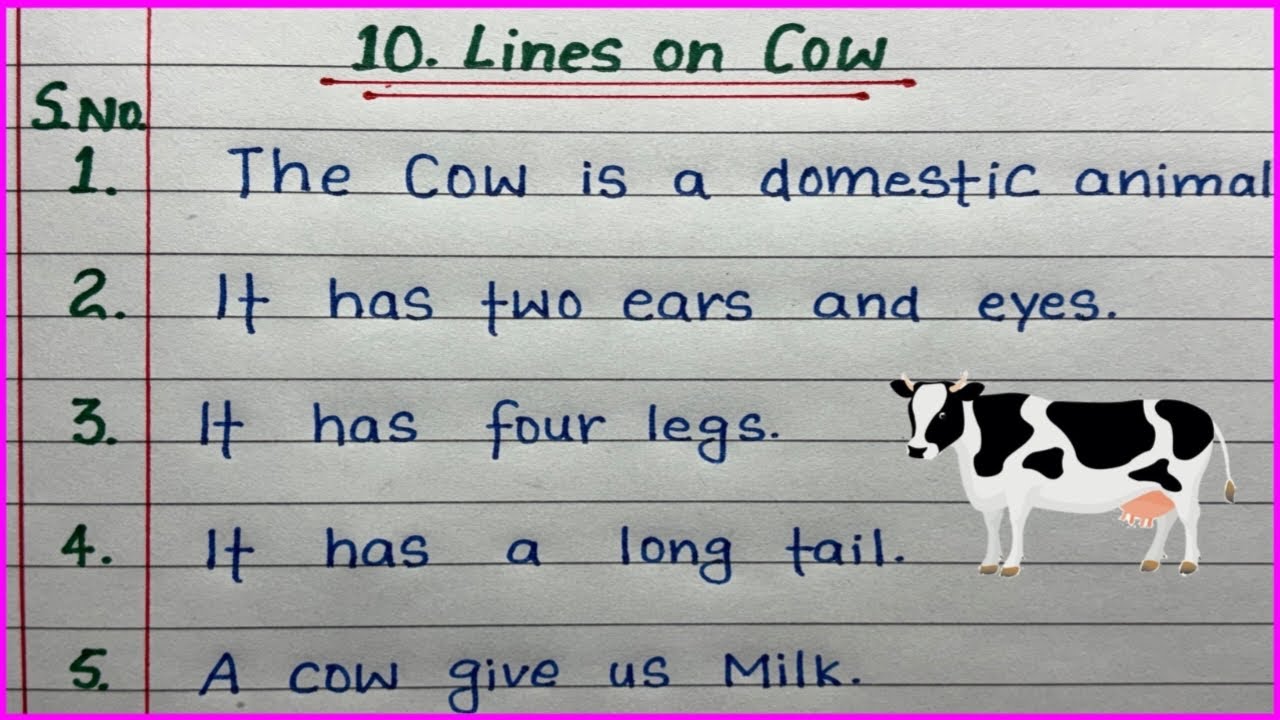 10. Lines on Cow
S.No.
1. The Cow is a domestic animal
2. It has two ears and eyes.
3. It has four legs.
4. It has a long tail.
5. A cow give us Milk.